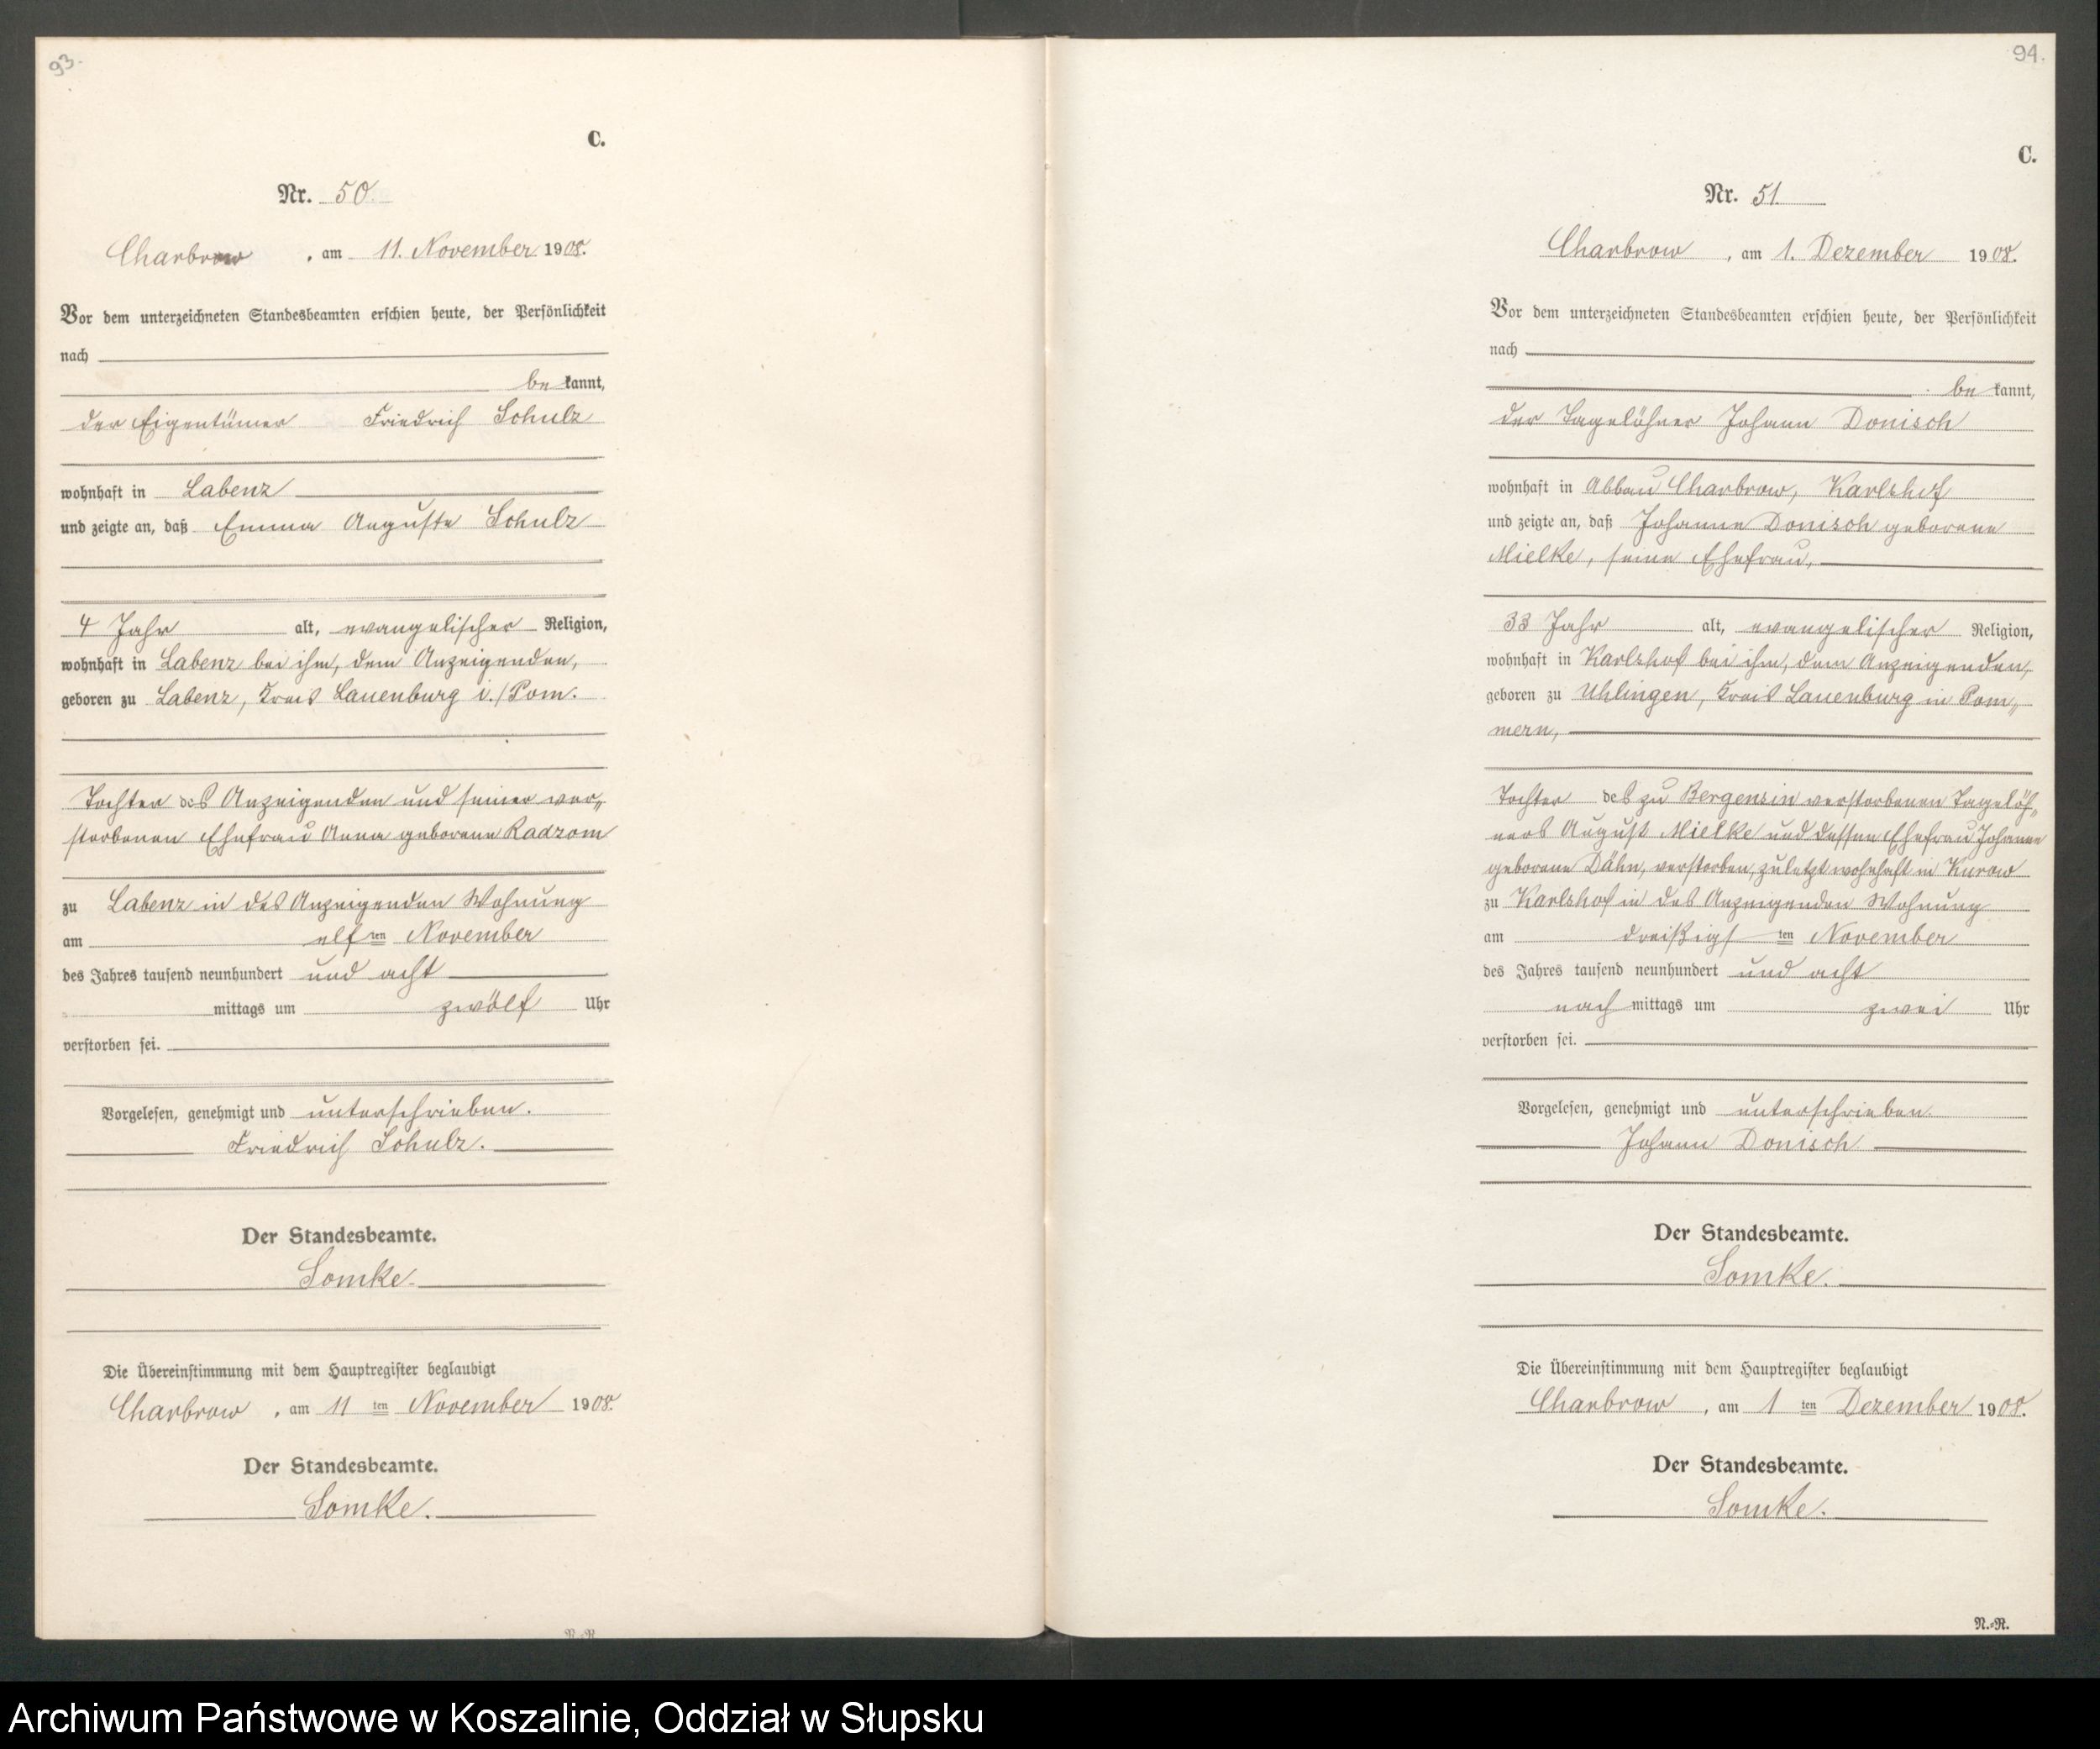 93.
C.
Nr. 50.
Charbrow, am 11. November 1908.
Vor dem unterzeichneten Standesbeamten erschien heute, der Persönlichkeit
nach
be kannt,
der Eigentümer Friedrich Schulz
wohnhaft in Labenz
und zeigte an, daß Emma Auguste Schulz
4 Jahr alt, evangelischer Religion,
wohnhaft in Labenz bei ihm, dem Anzeigenden,
geboren zu Labenz, Kreis Lauenburg i./Pom.
Tochter des Anzeigenden und seiner ver„
storbenen Ehefrau Anna geborene Radzom
zu Labenz in des Anzeigenden Wohnung
am elf ten November
des Jahres tausend neunhundert und acht
mittags um zwölf Uhr
verstorben sei.
Vorgelesen, genehmigt und unterschrieben.
Friedrich Schulz.
Der Standesbeamte.
Somke.
Die Übereinstimmung mit dem Hauptregister beglaubigt
Charbrow, am 11 ten November 1908.
Der Standesbeamte.
Somke.
N.=R.
94.
C.
Nr. 51.
Charbrow, am 1. Dezember 1908.
Vor dem unterzeichneten Standesbeamten erschien heute, der Persönlichkeit
nach
be kannt,
der Tagelöhner Johann Donisch
wohnhaft in Abbau Charbrow, Karlshof
und zeigte an, daß Johanne Donisch geborene
Mielke, seine Ehefrau,
33 Jahr alt, evangelischer Religion,
wohnhaft in Karlshof bei ihm, dem Anzeigenden,
geboren zu Uhlingen, Kreis Lauenburg in Pom„
mern,
Tochter des zu Bergensin verstorbenen Tagelöh„
ners August Mielke und dessen Ehefrau Johanne
geborene Dähn, verstorben, zuletzt wohnhaft in Kurow
zu Karlshof in des Anzeigenden Wohnung
am dreißigs ten November
des Jahres tausend neunhundert und acht
nach mittags um zwei Uhr
verstorben sei.
Vorgelesen, genehmigt und unterschrieben.
Johann Donisch
Der Standesbeamte.
Somke.
Die Übereinstimmung mit dem Hauptregister beglaubigt
Charbrow, am 1 ten Dezember 1908.
Der Standesbeamte.
Somke.
N.=R.
Archiwum Państwowe w Koszalinie, Oddział w Słupsku